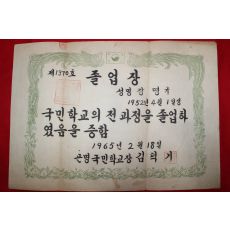 제1370호
졸업장
성명 강명기
1952년 4월 1일생
국민학교의 전과정을 졸업하
였음을 증함
1965년 2월 18일
곤명국민학교장 김의기